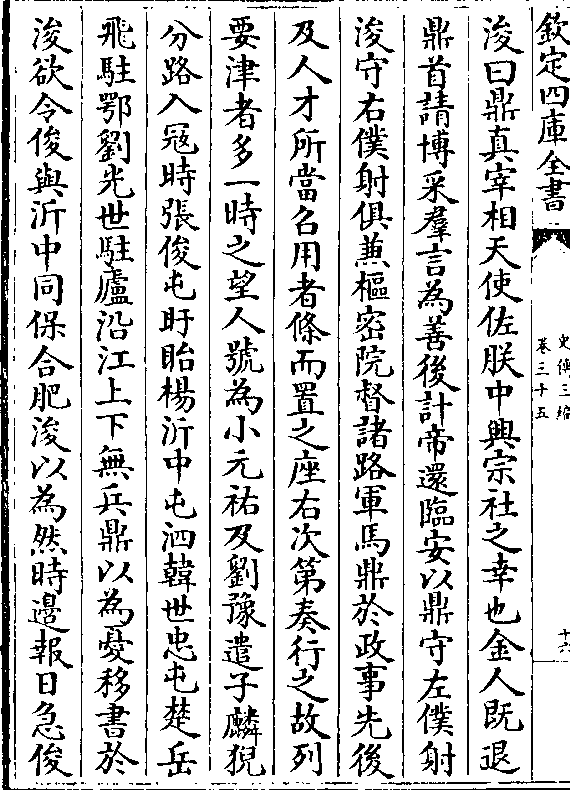 欽定四庫全書
史傳三編
卷三十五
十六
浚曰鼎真宰相天使佐朕中興宗社之幸也金人既退
鼎首請博采羣言為善後計帝還臨安以鼎守左僕射
浚守右僕射俱兼樞密院督諸路軍馬鼎於政事先後
及人才所當召用者條而置之座右次第奏行之故列
要津者多一時之望人號為小元祐及劉豫遣子麟猊
分路入寇時張俊屯盱眙楊沂中屯泗韓世忠屯楚岳
飛駐鄂劉光世駐廬沿江上下無兵鼎以為憂移書於
浚欲令俊與沂中同保合肥浚以為然時邉報日急俊